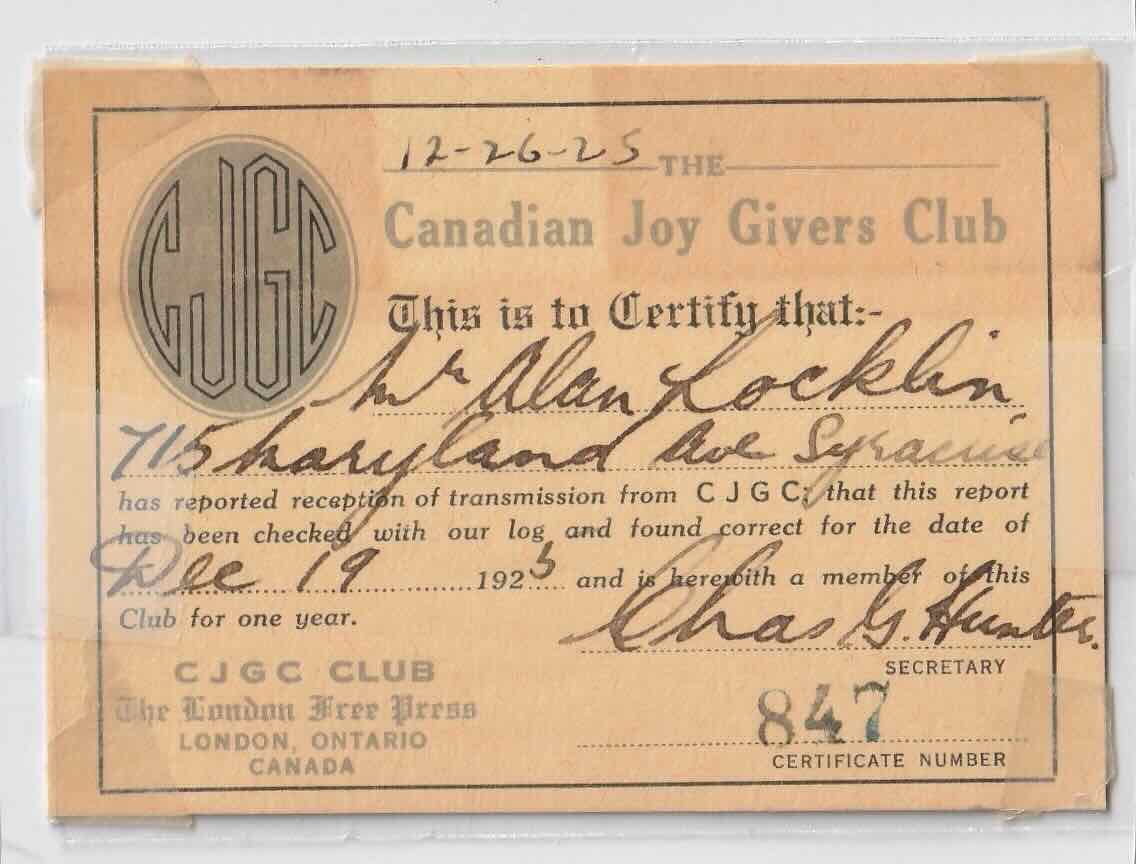 12-26-25
THE
Canadian Joy Givers Club
CJGC
This is to Certify that:-
Mr Alan Locklin
715 Maryland Ave Syracuse
has reported reception of transmission from C J G C; that this report
has been checked with our log and found correct for the date of
Dec 19 1925 and is herewith a member of this
Club for one year.
Chas G. Hunter.
SECRETARY
CJGC CLUB
The London Free Press
LONDON, ONTARIO
CANADA
847
CERTIFICATE NUMBER